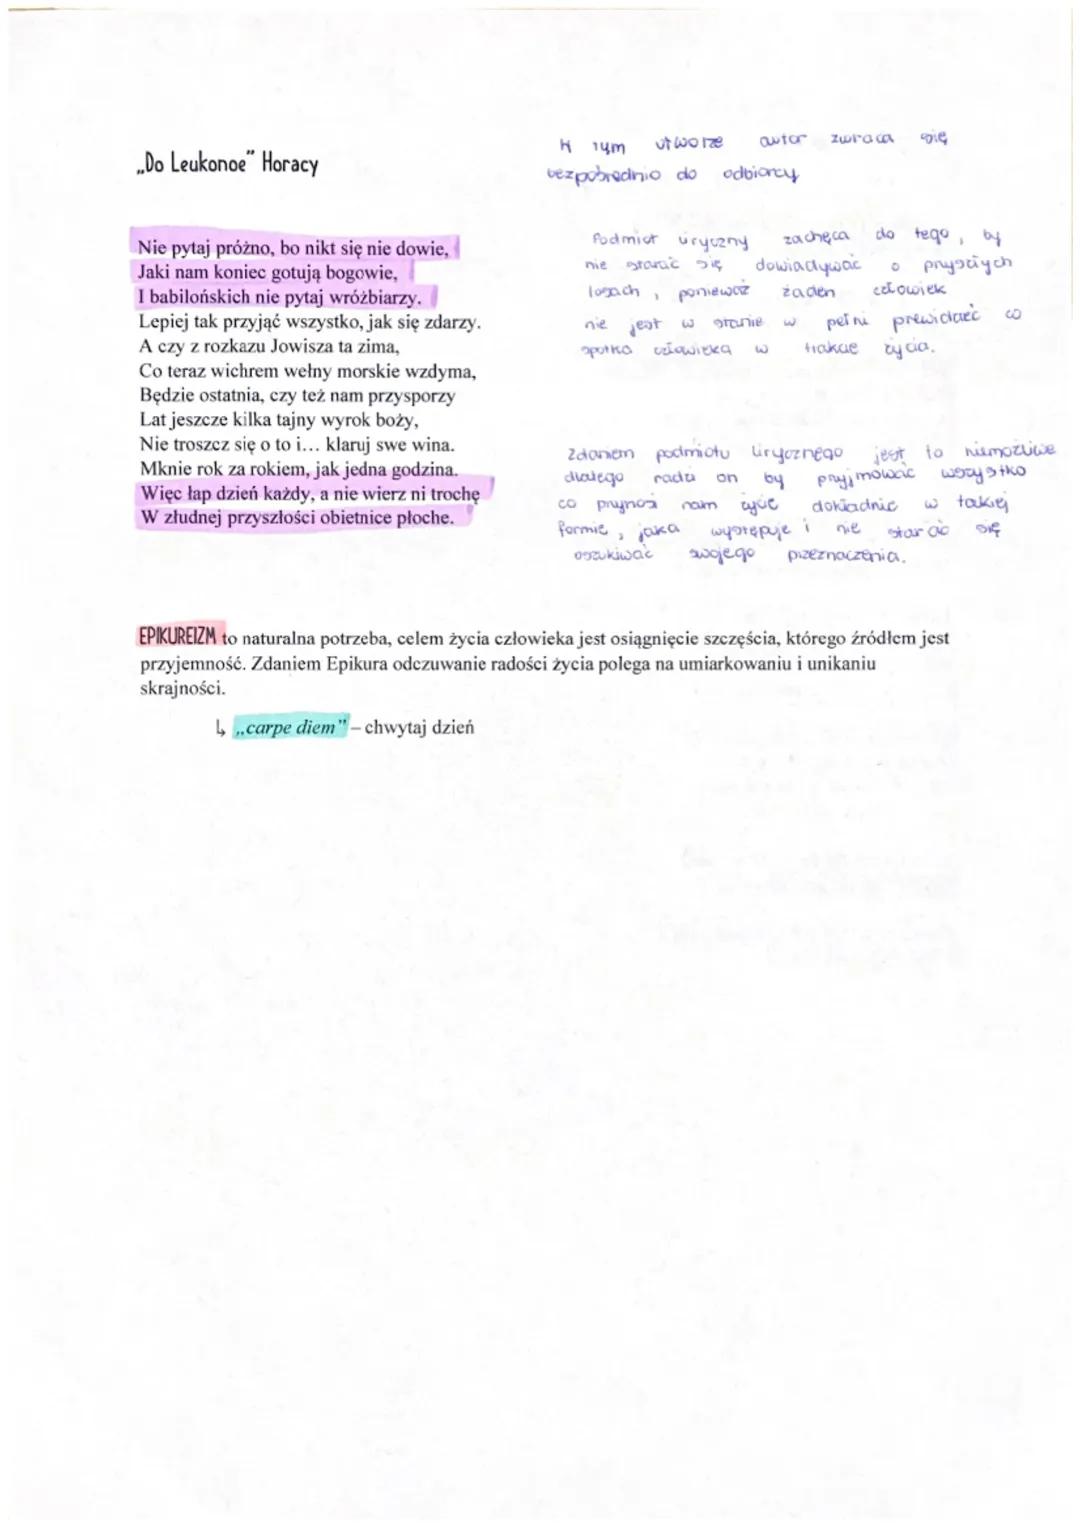 „Do Leukonoe" Horacy
W tym utworze autor zwraca się
bezpośrednio do odbiorcy
Nie pytaj próżno, bo nikt się nie dowie,
Jaki nam koniec gotują bogowie,
I babilońskich nie pytaj wróżbiarzy.
Lepiej tak przyjąć wszystko, jak się zdarzy.
A czy z rozkazu Jowisza ta zima,
Co teraz wichrem wełny morskie wzdyma,
Będzie ostatnia, czy też nam przysporzy
Lat jeszcze kilka tajny wyrok boży,
Nie troszcz się o to i... klaruj swe wina.
Mknie rok za rokiem, jak jedna godzina.
Więc łap dzień każdy, a nie wierz ni trochę
W złudnej przyszłości obietnice płoche.
Podmiot liryczny zachęca do tego, by
nie starać się dowiadywać o przyszłych
losach, ponieważ żaden człowiek
nie jest w stanie w pełni przewidzieć co
spotka człowieka w trakcie życia.
Zdaniem podmiotu lirycznego jest to niemożliwe
dlatego radzi on by przyjmować wszystko
co przynosi nam życie dokładnie w takiej
formie, jaka występuje i nie starać się
oszukiwać swojego przeznaczenia.
EPIKUREIZM to naturalna potrzeba, celem życia człowieka jest osiągnięcie szczęścia, którego źródłem jest
przyjemność. Zdaniem Epikura odczuwanie radości życia polega na umiarkowaniu i unikaniu
skrajności.
↳ „carpe diem" – chwytaj dzień